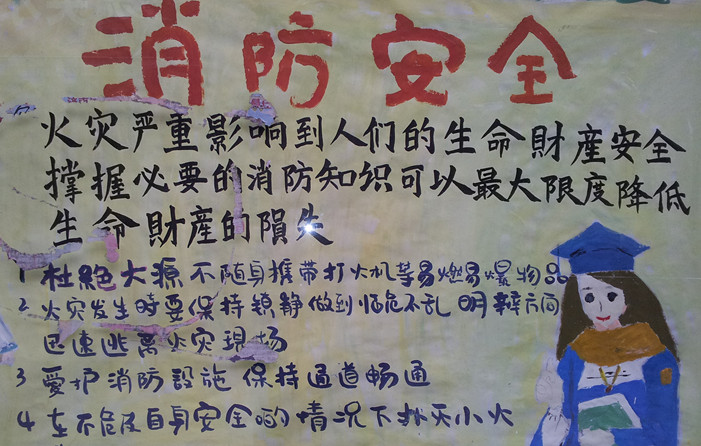 消防安全
火灾严重影响到人们的生命財産安全
撑握必要的消防知识可以最大限度降低
生命財産的隕失
1 杜絕大源 不随身携带打火机等易燃易爆物品
2 火灾发生時要保持镇静 做到临危不乱 明辩方向
迅速逃离火灾現场
3 愛护消防設施 保持通道畅通
4 在不危及自身安全的情况下扑灭小火